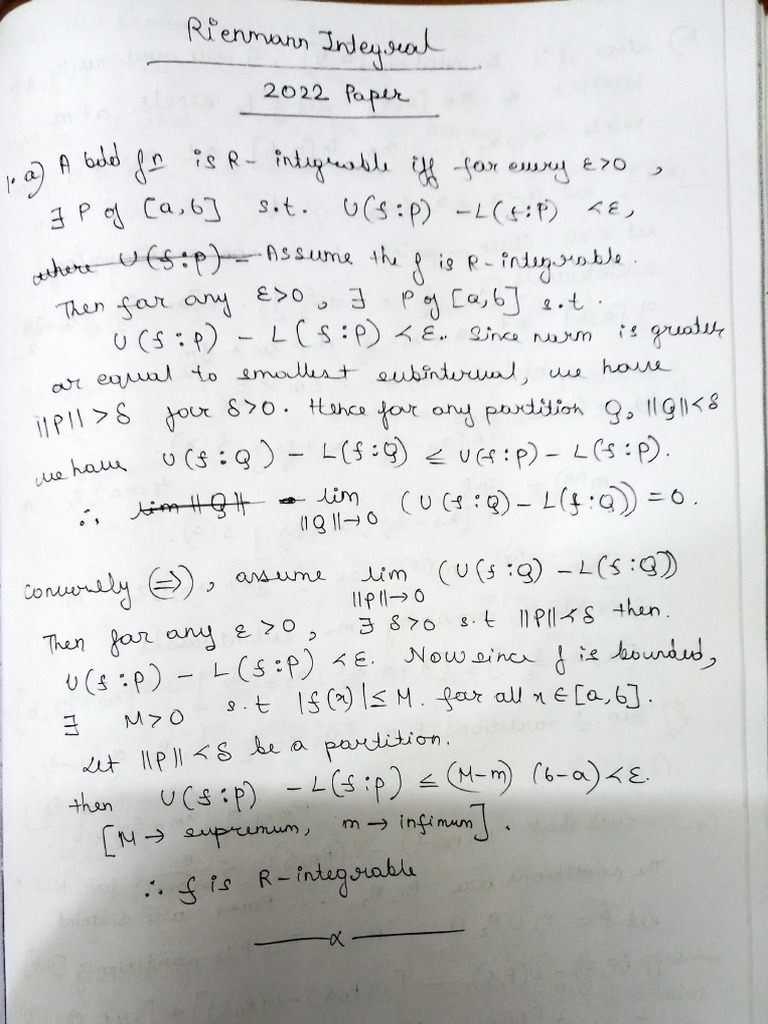 Rienmann Integral
2022 Paper
1. a) A bdd fn is R-integrable iff for every ε>0,
∃ P of [a,b] s.t. U(f:P) - L(f:P) <ε,
where U(f:p) = Assume the f is R-integrable.
Then for any ε>0, ∃ P of [a,b] s.t.
U(f:P) - L(f:P) <ε. Since nurm is greater
or equal to smallest subinterval, we have
||P|| > δ for δ>0. Hence for any partition Q, ||Q||<δ
we have U(f:Q) - L(f:Q) ≤ U(f:P) - L(f:P).
∴ lim ||Q|| lim (U(f:Q) - L(f:Q)) = 0.
||Q||→0
Conversely (⇒), assume lim (U(f:Q) - L(f:Q))
||P||→0
Then for any ε>0, ∃ δ>0 s.t ||P||<δ then.
U(f:P) - L(f:P) <ε. Now since f is bounded,
∃ M>0 s.t |f(x)| ≤ M. for all x ∈ [a,b].
Let ||P|| <δ be a partition.
then U(f:P) - L(f:P) ≤ (M-m) (b-a) <ε.
[M → supremum, m → infimum].
∴ f is R-integrable